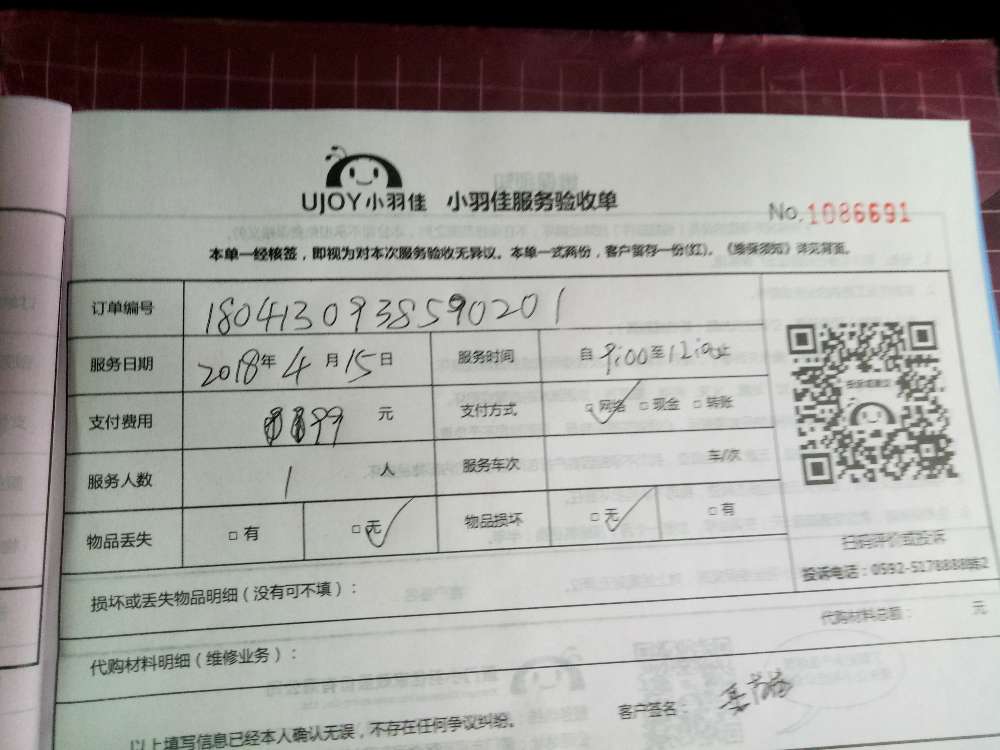 UJOY小羽佳 小羽佳服务验收单
No. 1086691
本单一经核签，即视为对本次服务验收无异议。本单一式两份，客户留存一份(红)。《维保须知》详见背面。
订单编号 1804130938590201
服务日期 2018年4月15日 服务时间 自9:00至12:00止
支付费用 99元 支付方式 □网络 □现金 □转账
服务人数 1人 服务车次 车/次
物品丢失 □有 □无 物品损坏 □无 □有
扫码评价或投诉
投诉电话：0592-5178888转2
损坏或丢失物品明细（没有可不填）：
代购材料总额： 元
代购材料明细（维修业务）：
客户签名：
以上填写信息已经本人确认无误，不存在任何争议纠纷。